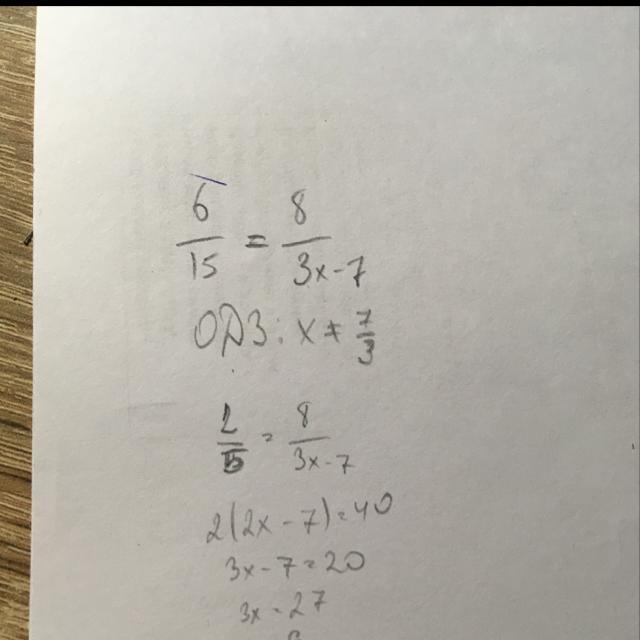 6/15 = 8/(3x-7)
ОДЗ: x ≠ 7/3
2/5 = 8/(3x-7)
2(2x-7)=40
3x-7=20
3x=27